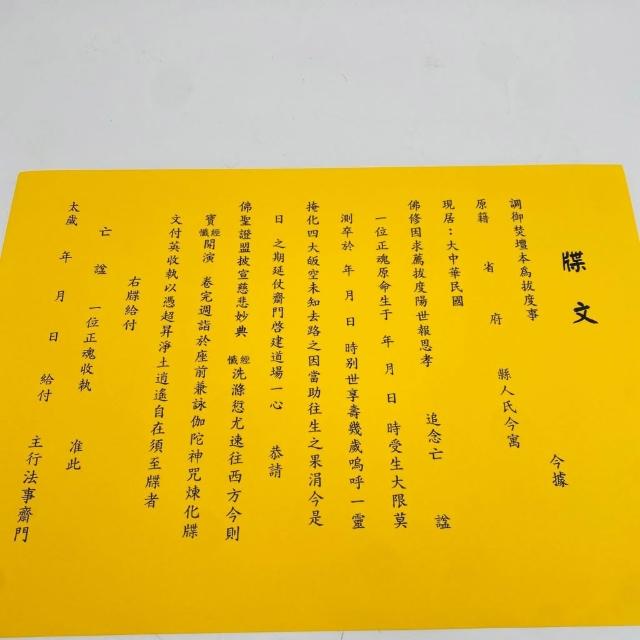 牒文
今據
調御焚壇本為拔度事
原籍 省 府 縣人氏今寓
現居：大中華民國
佛修因求薦拔度陽世報恩孝 追念亡 諡
一位正魂原命生于 年 月 日 時受生大限莫
測卒於 年 月 日 時別世享壽幾歲嗚呼一靈
掩化四大皈空未知去路之因當助往生之果涓今是
日 之期延仗齋門啓建道場一心 恭請
佛聖證盟披宣慈悲妙典 經懺 洗滌愆尤速往西方今則
寶經懺開演 卷完週詣於座前兼詠伽陀神咒煉化牒
文付英收執以憑超昇淨土逍遙自在須至牒者
右牒給付
亡 諡 一位正魂收執 准此
太歲 年 月 日 給付 主行法事齋門